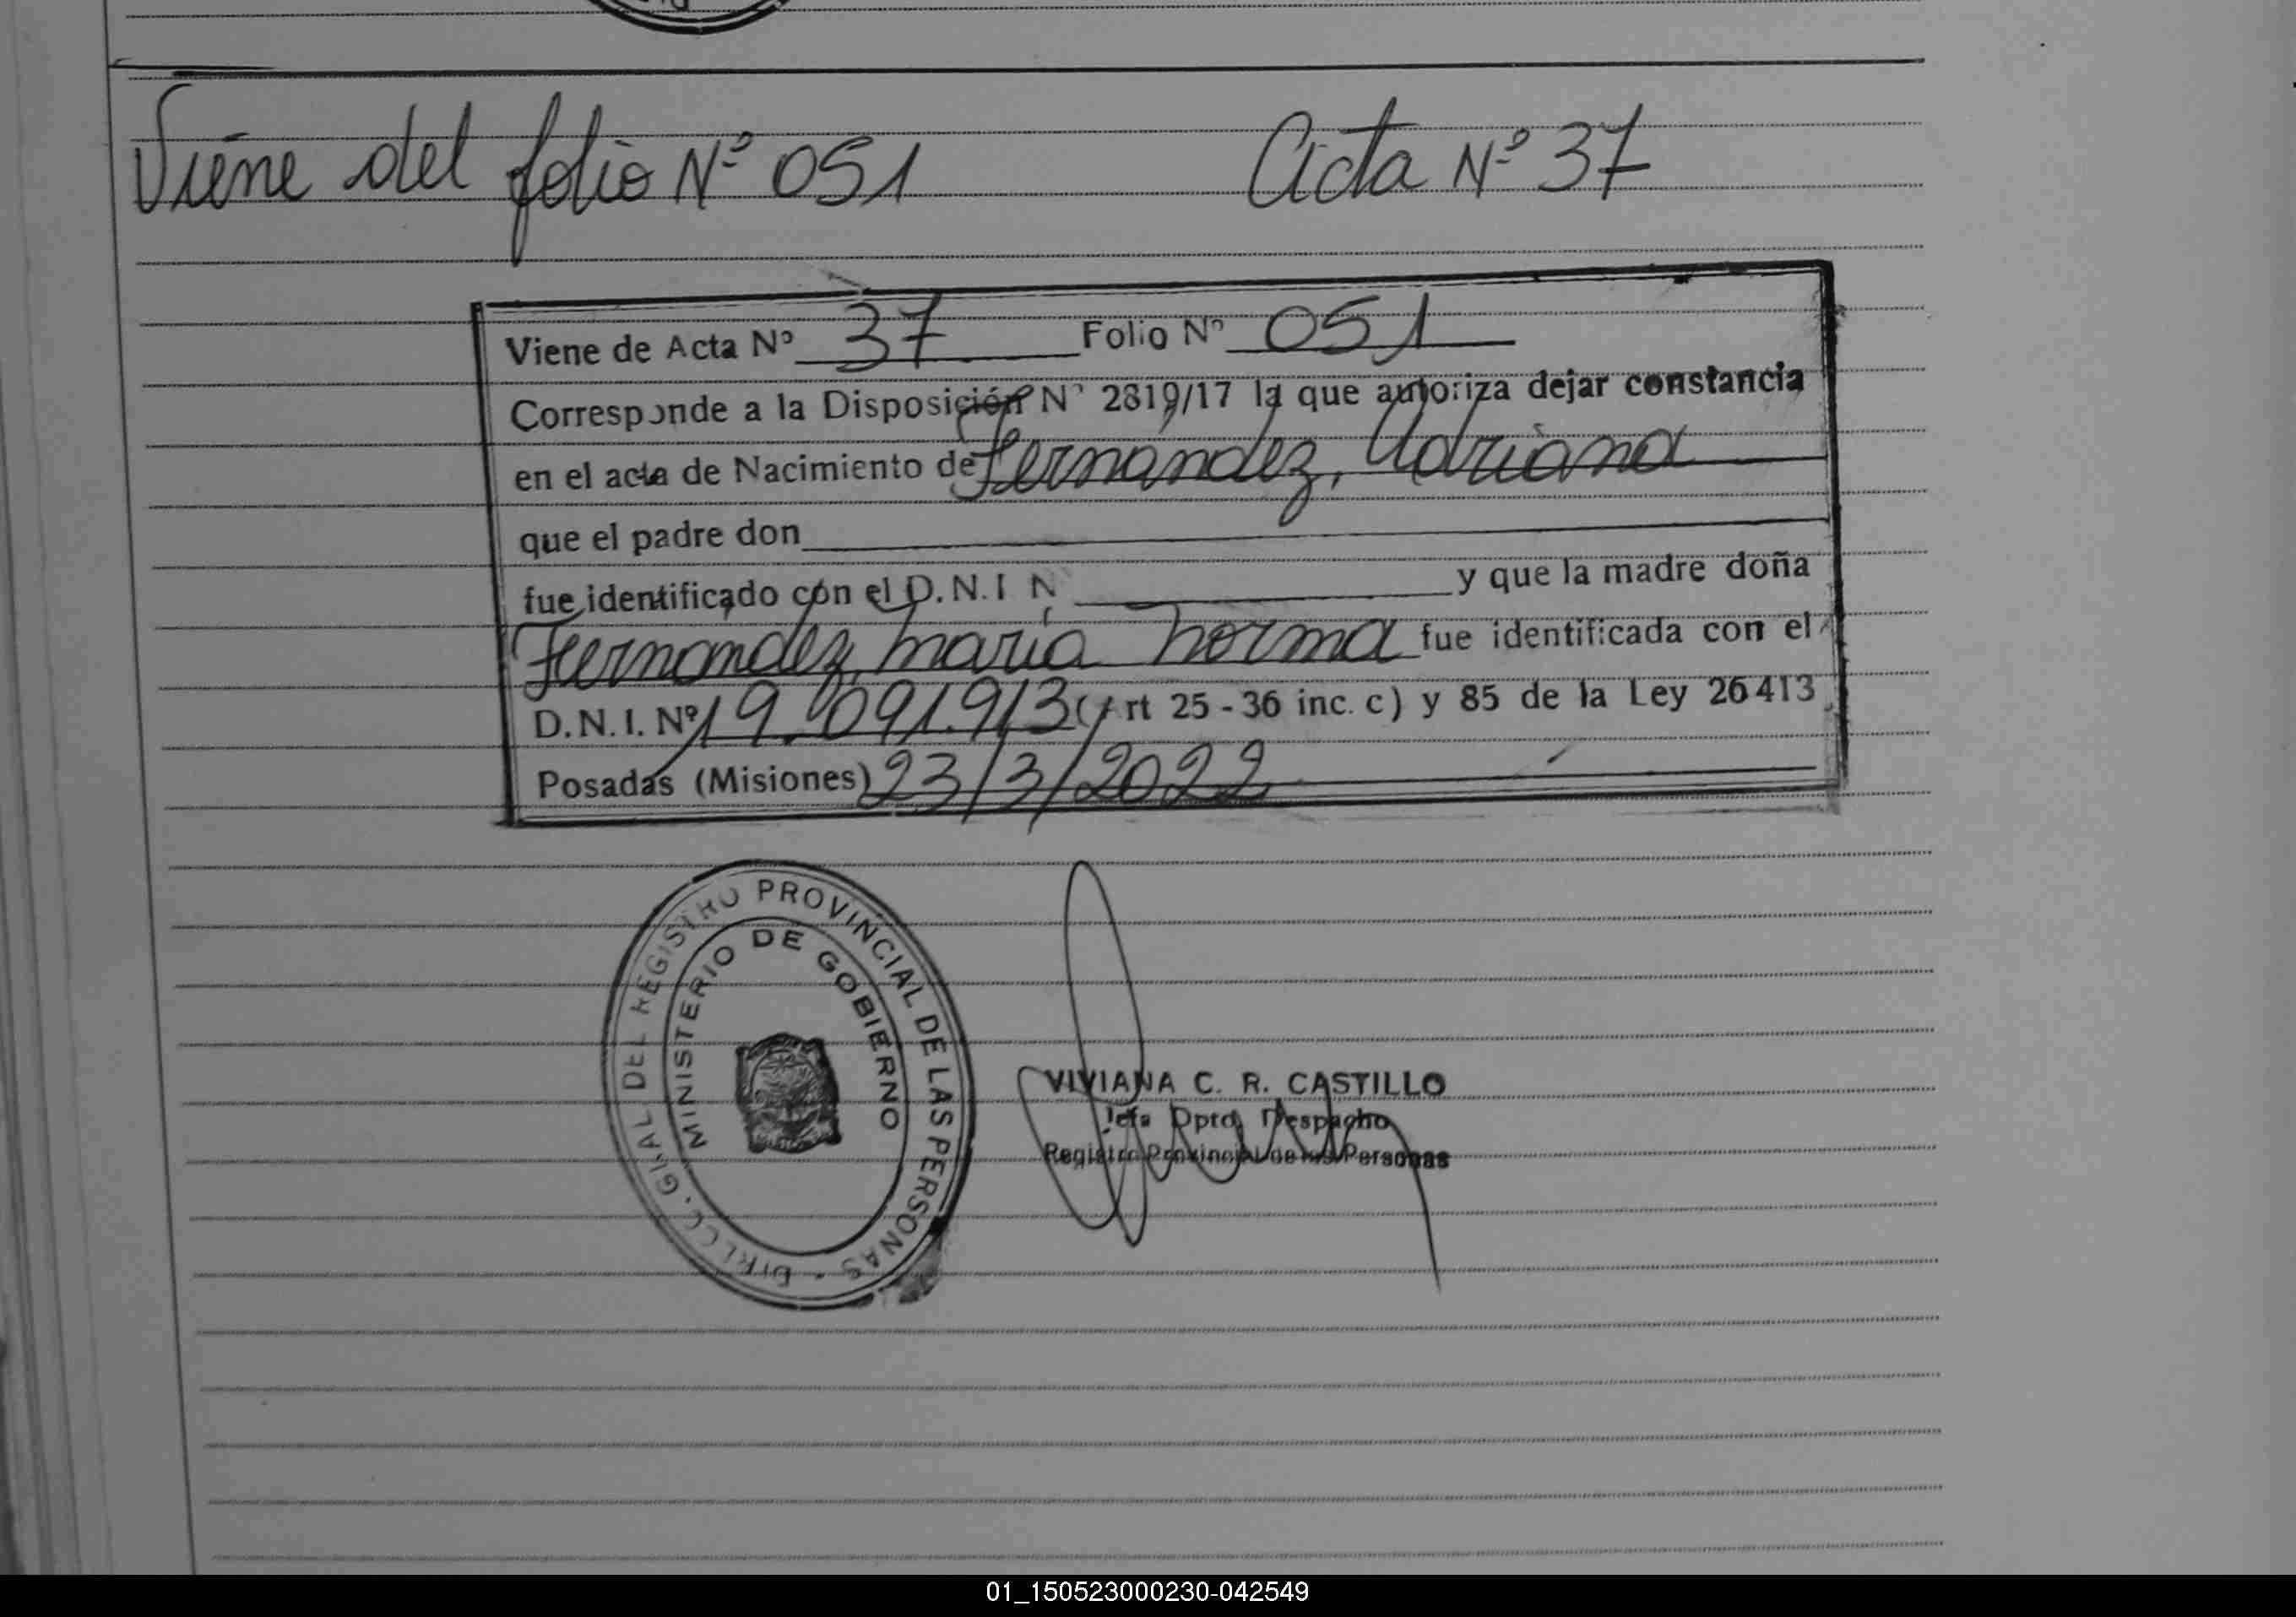 Viene del folio Nº 051 Acta Nº 37
Viene de Acta Nº 37 Folio Nº 051
Corresponde a la Disposición Nº 2819/17 la que autoriza dejar constancia
en el acta de Nacimiento de Fernández, Adriana
que el padre don
fue identificado con el D.N.I N y que la madre doña
Fernandez, maría norma fue identificada con el
D.N.I. Nº 19.091.913 (Art 25 - 36 inc. c) y 85 de la Ley 26413
Posadas (Misiones) 23/3/2022
DIRECC. GRAL DEL REGISTRO PROVINCIAL DE LAS PERSONAS
MINISTERIO DE GOBIERNO
VIVIANA C. R. CASTILLO
Jefa Dpto. Despacho
Registro Provincial de las Personas
01_150523000230-042549